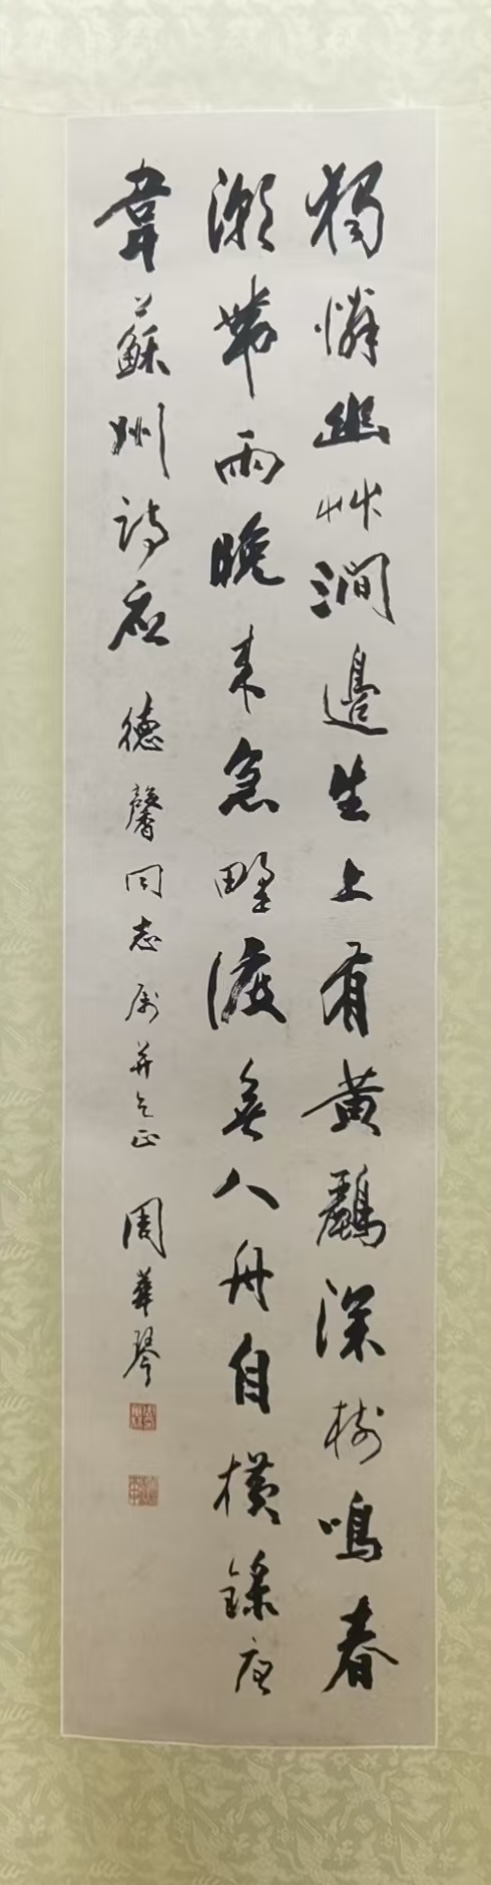 獨憐幽艸澗邊生上有黃鸝深樹鳴春
潮帶雨晚來急野渡無人舟自橫錄唐
韋蘇州詩應德馨同志屬并乞正
周華琴